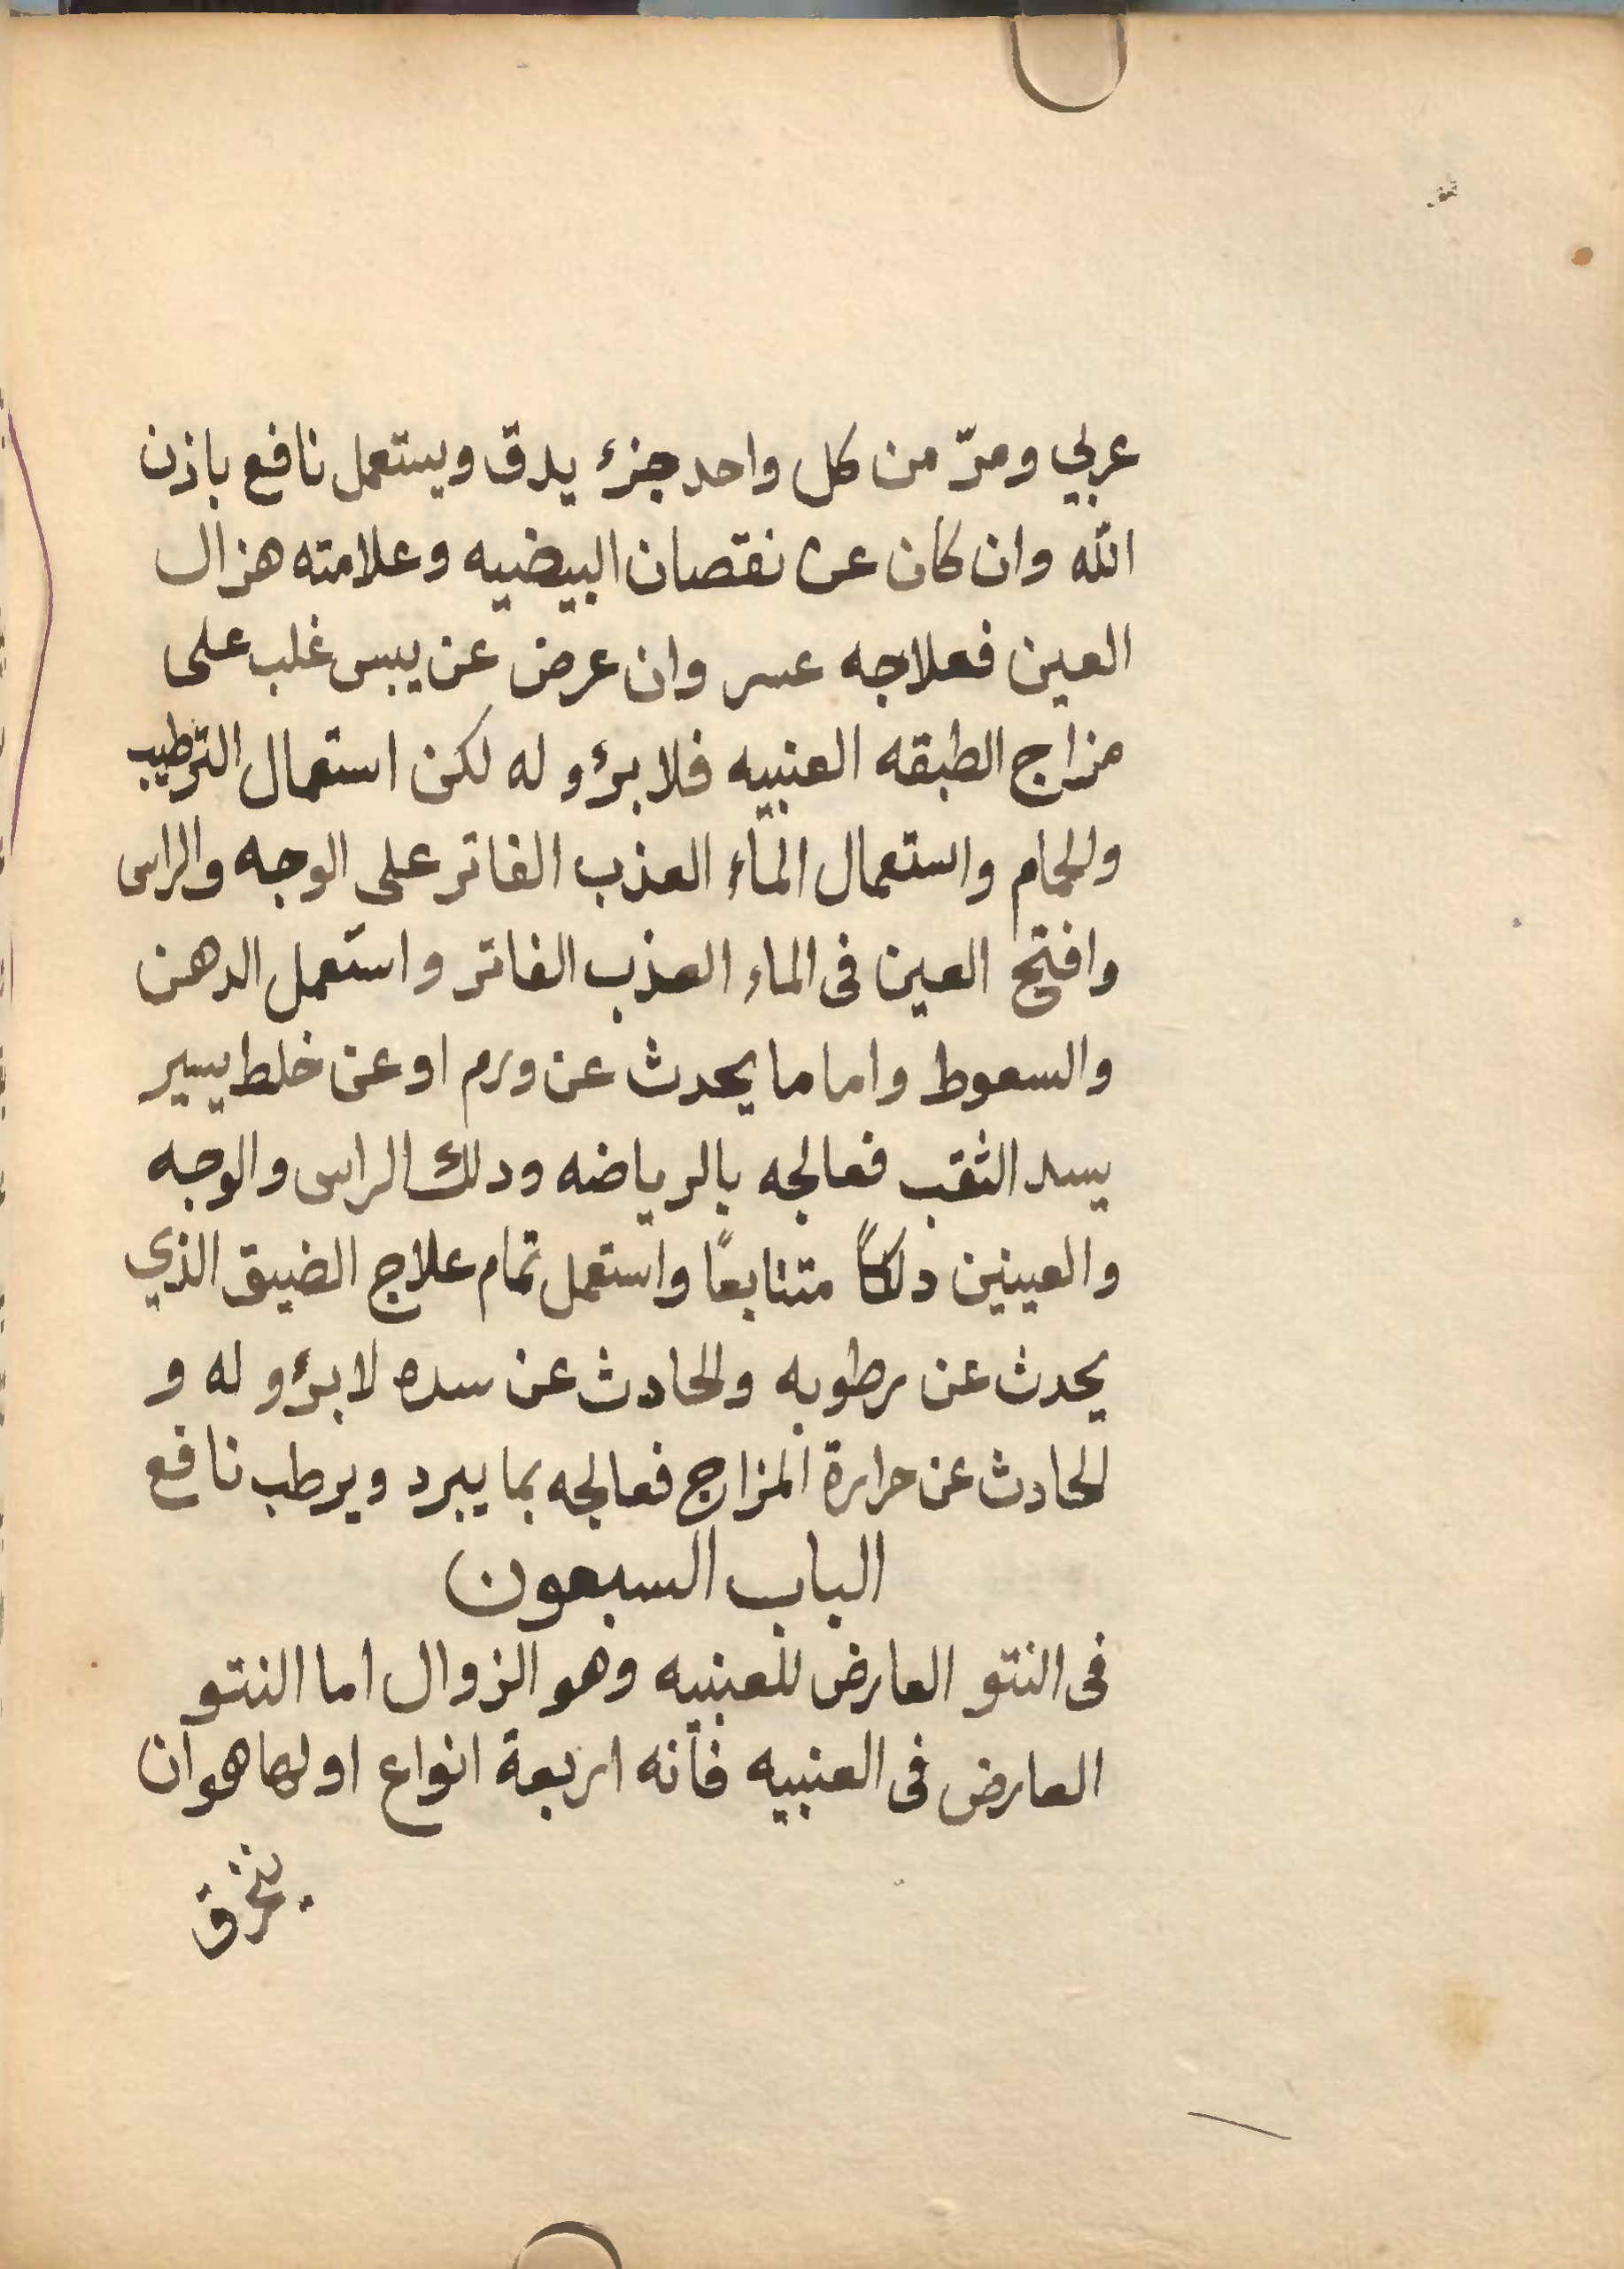 عربي ومرّ من كل واحد جزء يدق ويستعمل نافع باذن
الله وان كان عن نقصان البيضيه وعلامته هزال
العين فعلاجه عسر وان عرض عن يبس غلب على
مزاج الطبقه العنبيه فلا برؤ له لكن استعمال الترطيب
والحمام واستعمال الماء العذب الفاتر على الوجه والراس
وافتح العين فى الماء العذب الفاتر واستعمل الدهن
والسعوط واما ما يحدث عن ورم او عن خلط يسير
يسد الثقب فعالجه بالرياضه ودلك الراس والوجه
والعينين دلكاً متتابعاً واستعمل تمام علاج الضيق الذي
يحدث عن رطوبه والحادث عن سده لا برؤ له و
الحادث عن حرارة المزاج فعالجه بما يبرد ويرطب نافع
الباب السبعون
فى النتو العارض للعنبيه وهو الزوال اما النتو
العارض فى العنبيه فأنه اربعة انواع اولها هو ان
ينخرق